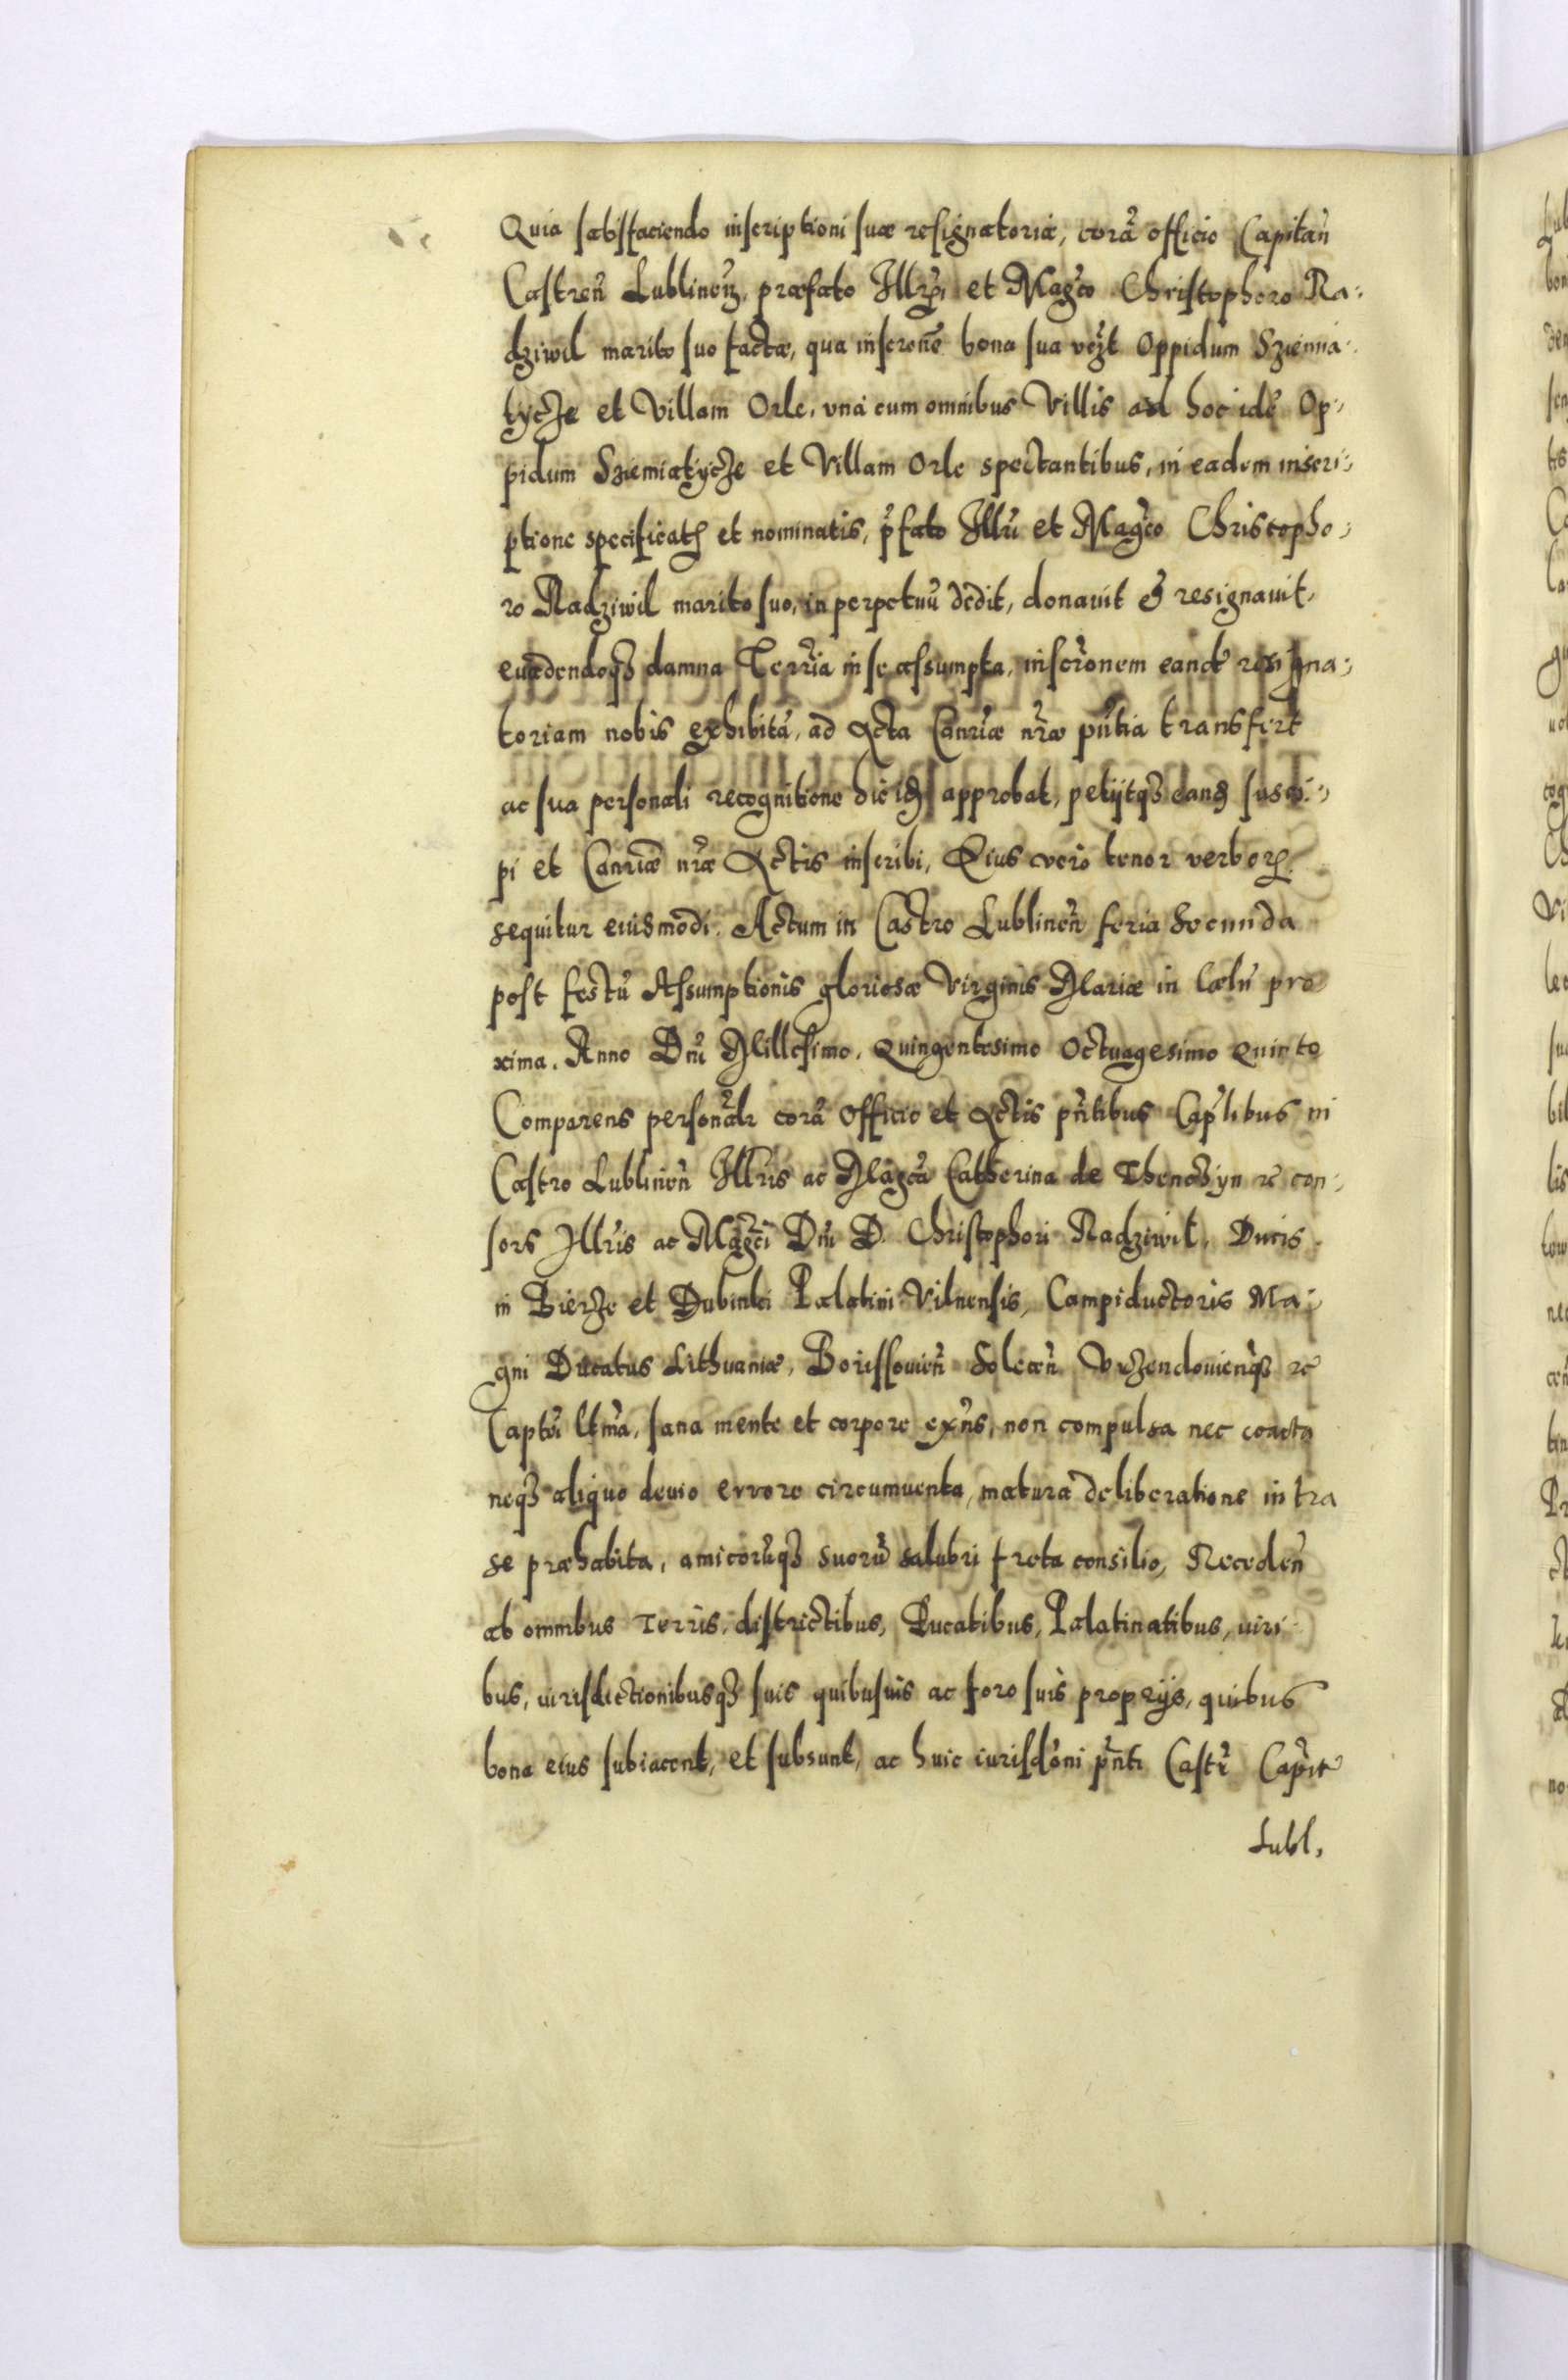 Quia satisfaciendo inscriptioni suæ resignatoriæ, corã officio Capitañ
Castreñ Lublineñ, præfato Illr̃i et Mag̃co Christophoro Ra-
dziwil marito suo factæ, qua inscrõne bona sua vcz̃t Oppidum Sziemia-
tycze et Villam Orle, vna cum omnibus Villis ad hoc idẽ Op-
pidum Sziemiatycze et Villam Orle spectantibus, in eadem inscri-
ptione specificatis et nominatis, p̃fato Illr̃i et Mag̃co Christopho-
ro Radziwil marito suo, in perpetuũ dedit, donauit & resignauit,
euadendoq3 damna Terr̃ia in se assumpta, inscr̃onem eandẽ resigna-
toriam nobis exhibitã, ad Acta Canr̃iæ nr̃æ pñtia transfert
ac sua personali recognitione approbat, petijtq3 eand̃ susci-
pi et Canr̃iæ nr̃æ Actis inscribi, Eius vero tenor verborũ
sequitur eiusmodi. Actum in Castro Lublineñ feria Secunda
post festũ Assumptionis gloriosæ Virginis Mariæ in Cælũ pro
xima. Anno Dñi Millesimo, Quingentesimo Octuagesimo Quinto
Comparens personalr̃ corã Officio et Actis pñtibus Cap̃libus in
Castro Lublineñ Illr̃is ac Mag̃ca Catherina de Thenczyn &c con-
sors Illr̃is ac Mag̃ci Dñi D. Christophori Radziwil, Ducis
in Bierze et Dubinki Palatini Vilnensis, Campiductoris Ma-
gni Ducatus Lithuaniæ, Borissouieñ Soleceñ Vrzendouieñq3 &c
Capt̃i ltm̃a, sana mente et corpore exñs, non compulsa nec coacta
neq3 aliquo deuio errore circumuenta, matura deliberatione intra
se præhabita, amicorũq3 suorũ salubri freta consilio, Recedeñ
ab omnibus Terris, districtibus, Ducatibus, Palatinatibus, iuri
bus, iurisdictionibusq3 suis quibusuis ac foro suis proprijs, quibus
bona eius subiacent, et subsunt, ac huic iurisdõni pñti Castr̃ Capit̃
Lubl,